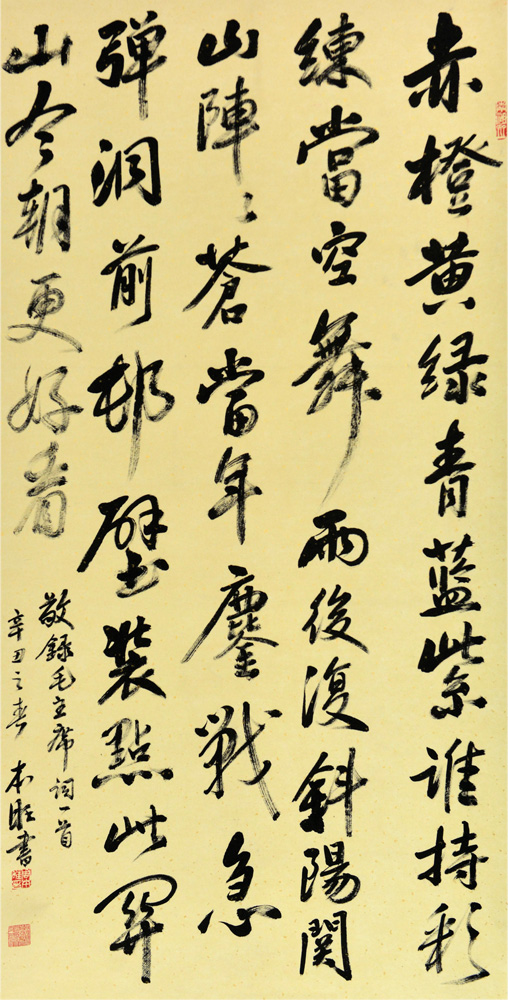 赤橙黄绿青藍紫谁持彩
練當空舞雨後復斜陽関
山陣々蒼當年鏖戰急
弹洞前邨壁装點此関
山今朝更好看
敬録毛主席詞一首
辛丑之春 本旺書